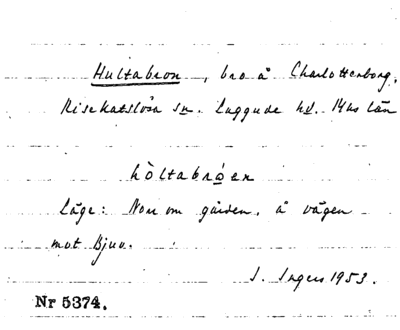 Hultabron, bro å Charlottenborg,
Risekatslösa sn. Luggude hd. Mus län
hòltabrǫen
Läge: Norr om gården, å vägen
mot Bjuv.
I. Ingers 1953.
Nr 5374.